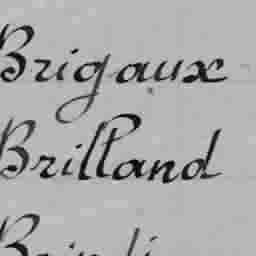 Brigaux
Brilland